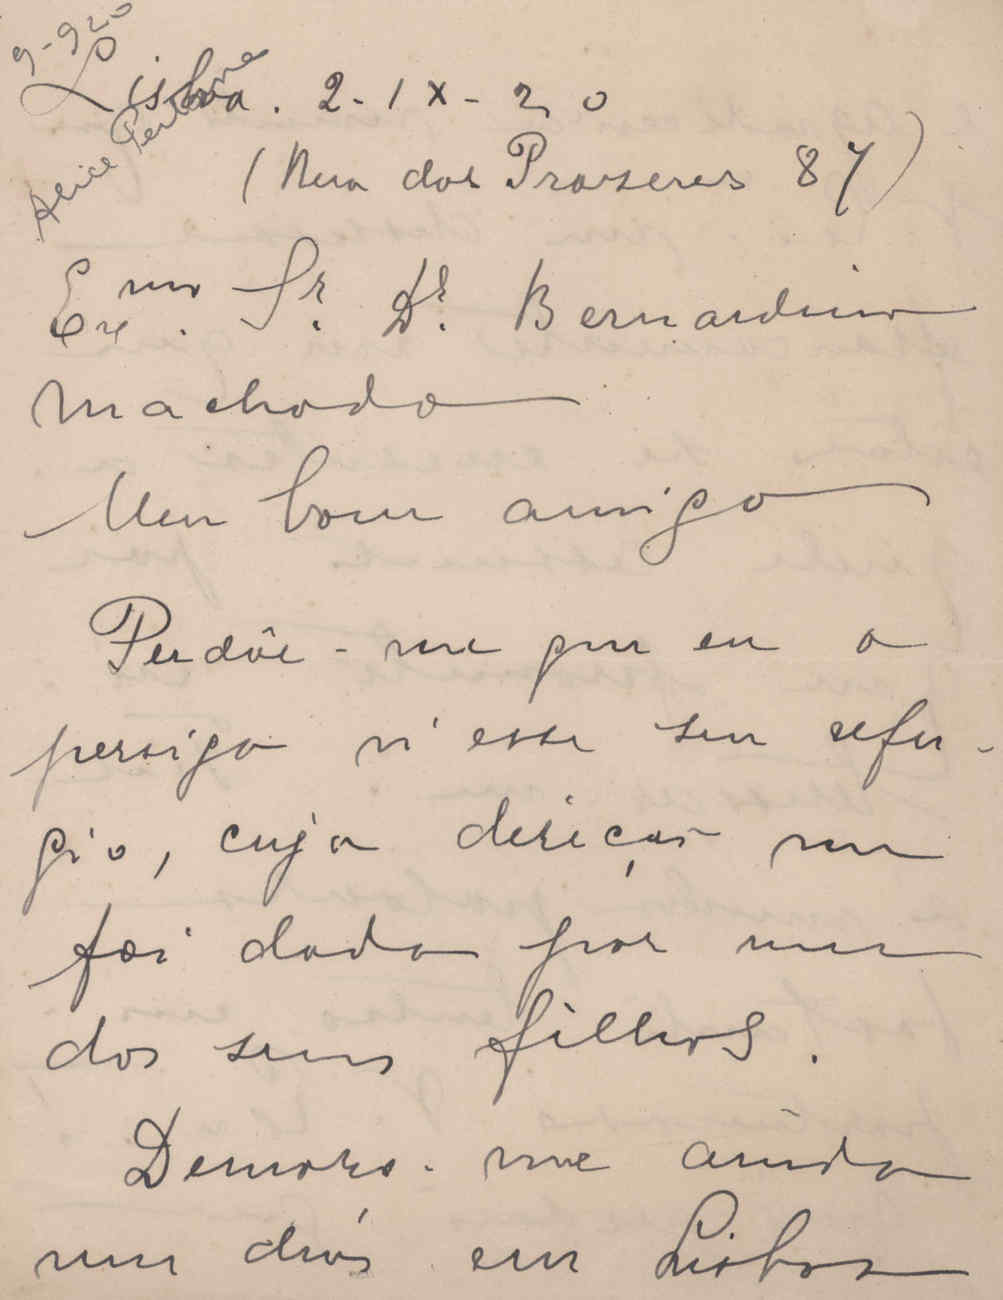 9-920
Alice Pestana
Lisboa. 2-IX-20
(Rua dos Prazeres 87)
Exmo Sr. Dr. Bernardino
Machado
Meu bom amigo
Perdôe-me que eu o
persiga n'esse seu refu-
gio, cuja direcção me
foi dada por um
dos seus filhos.
Demoro-me ainda
uns dias em Lisboa